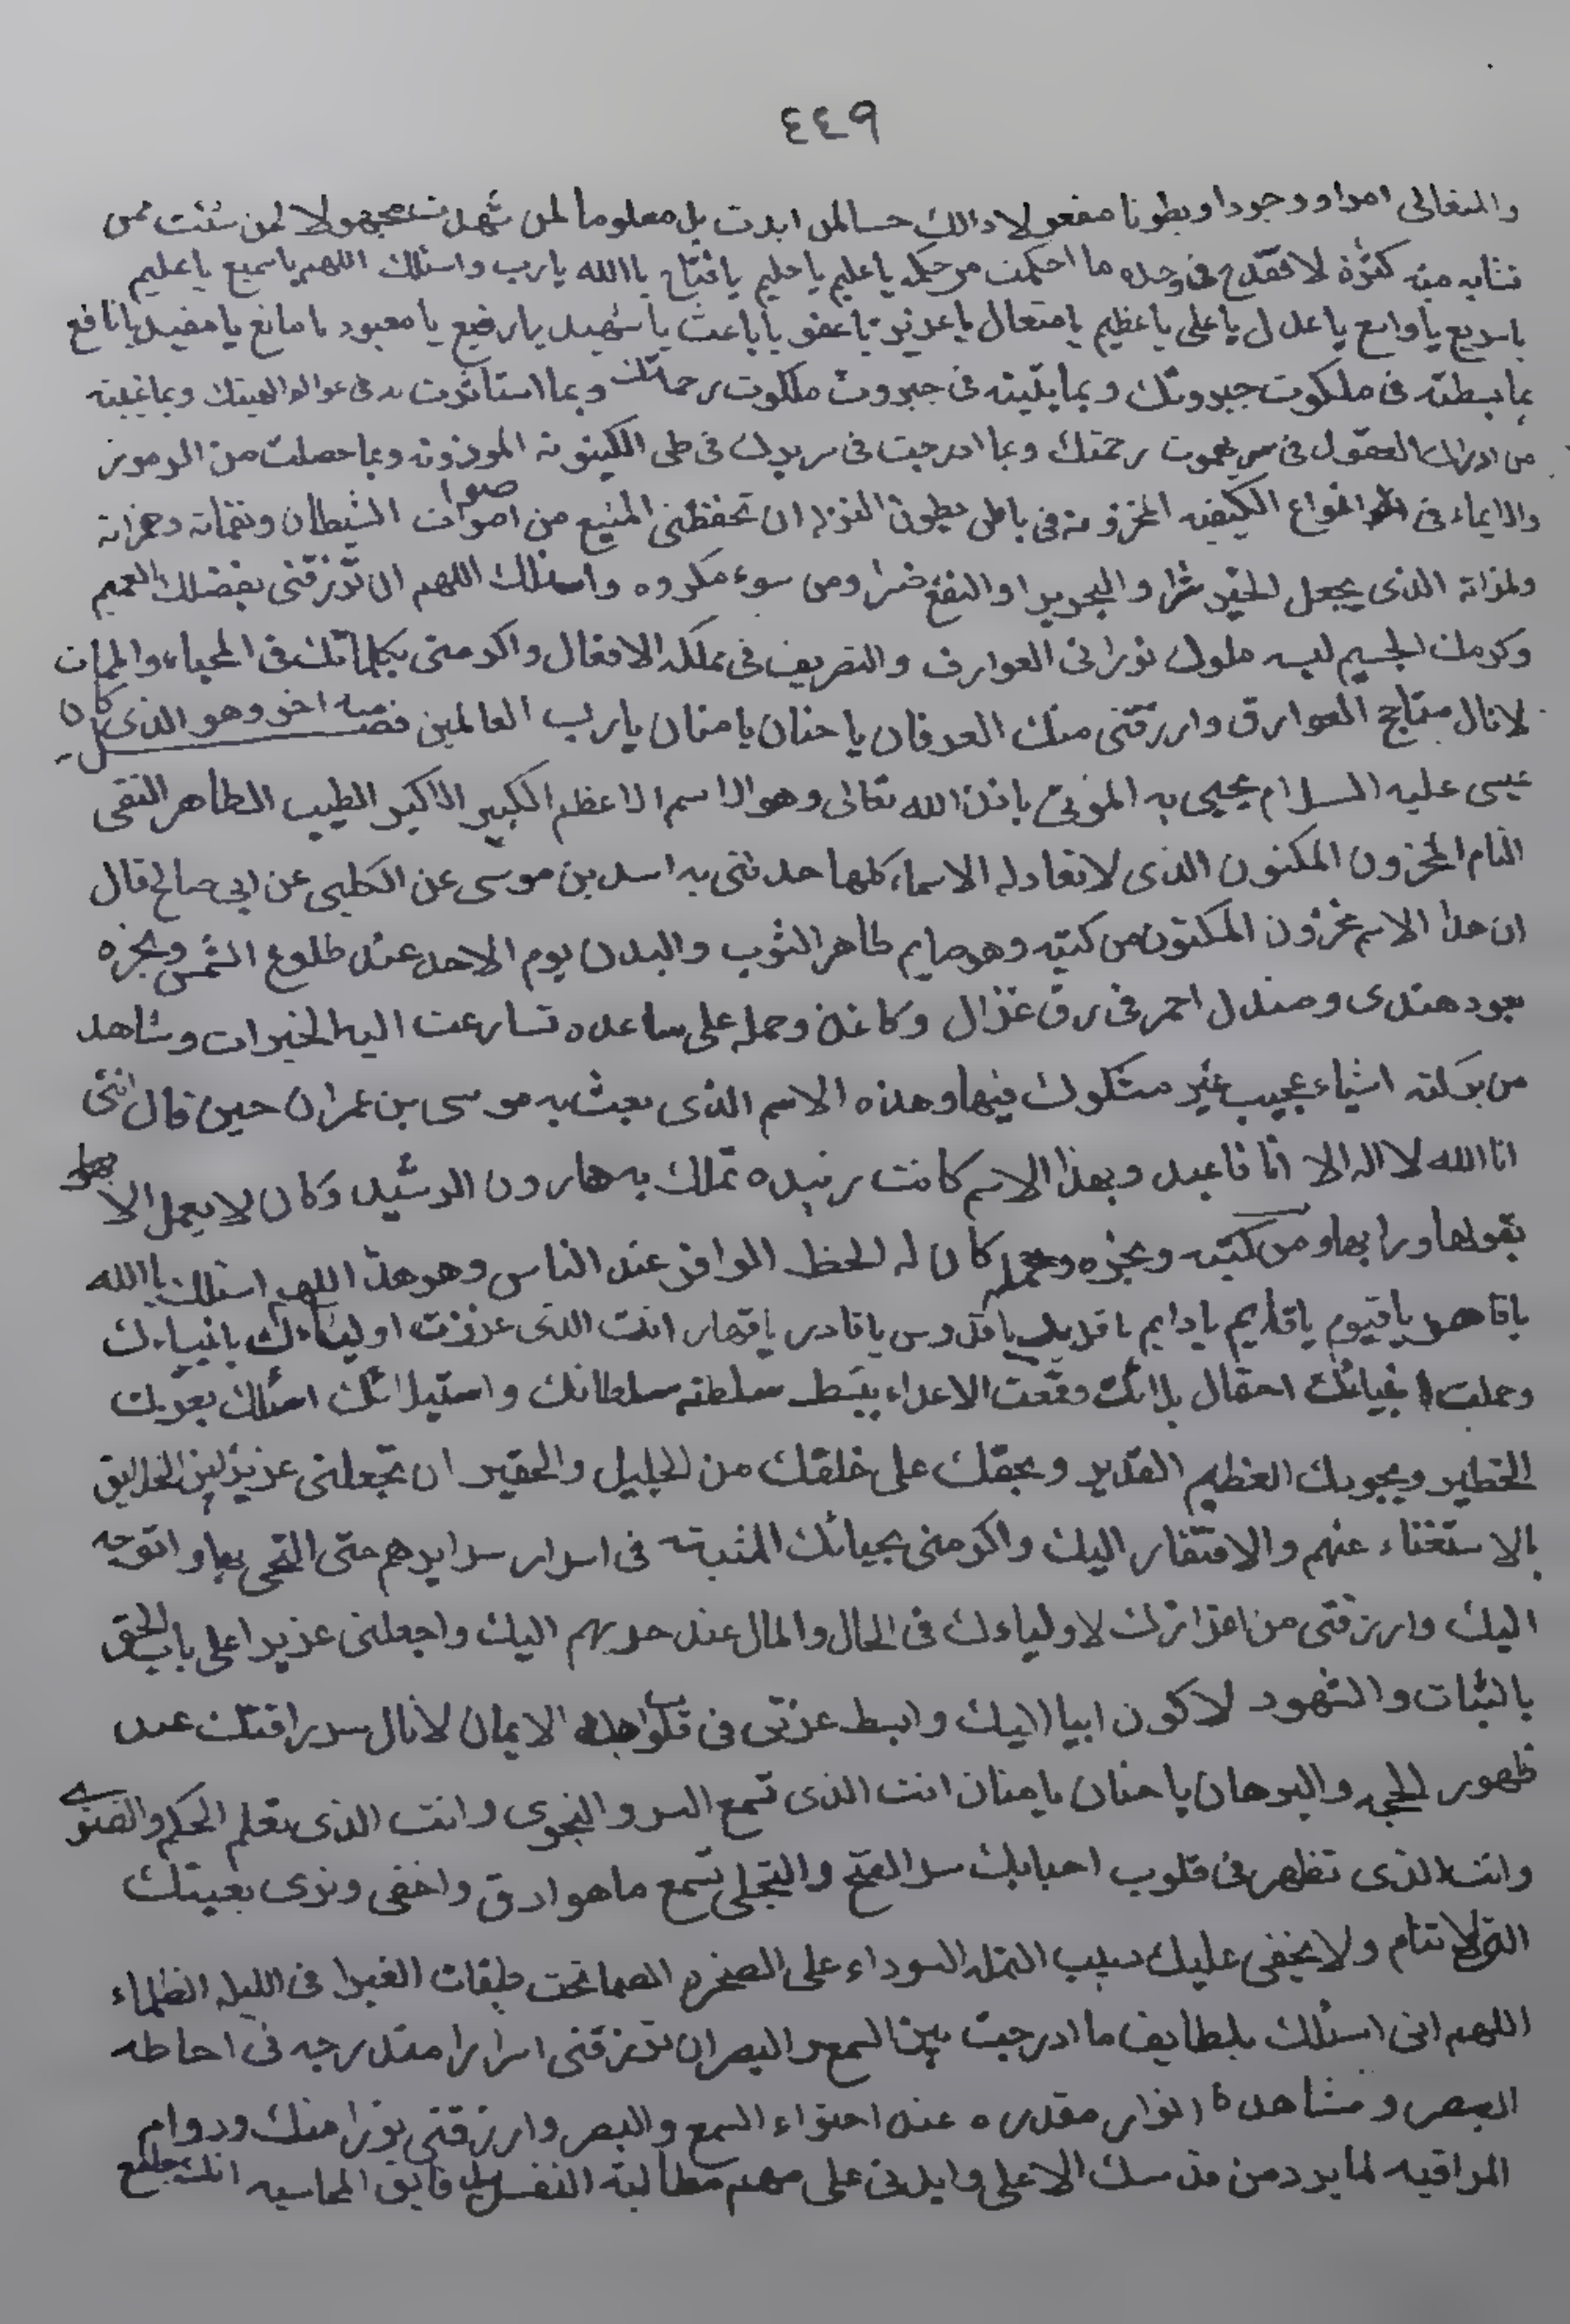 ٤٤٩
والمتعالى امرا ووجودا وبطونا مفعولا دالك حسا لمن ابدت بل معلوما لمن شهدت مجهولا لمن شئت ممن
منه كثرة لا فى وحده ما احكمت من حكمه يا عليم يا حليم يا فتاح يا الله يا رب واسئلك اللهم يا سميع يا عليم
يا سريع يا واسع يا عدل يا على يا عظيم يا متعال يا عزيز يا عفو يا باعث يا شهيد يا رفيع يا معبود يا مانع يا مفيد يا نافع
بما بسطته فى ملكوت جبروتك وبما بثيته فى جبروت ملكوت رحمانك وبما استاثرت به فى عوالم الهيتك وبما غيبته
من ادراك العقول فى رحمتك وبما ادرجت فى سريدك فى طى الكينونة الموزونه وبما حصلت من الرموز
والايماء فى انواع الكيفيه المخزونه فى باطن بطون النزله ان تحفظنى المنيع من اصوات الشيطان ونغماته وهمزاته
ولمزاته الذى يجعل الخير شرا والبحر برا والنفع ضرا ومن سوء مكروه واسئلك اللهم ان ترزقنى بفضلك العميم
وكرمك الجسيم لبسه ملوك نورانى العوارف والتصريف فى مملكه الافعال واكرمنى بكلماتك فى المحياء والممات
لانال مناجح العوارق وارزقنى منك العرفان يا حنان يا منان يا رب العالمين فصل منه اخر وهو الذى كان
عيسى عليه السلام يحيى به الموتى باذن الله تعالى وهو الاسم الاعظم الكبير الاكبر الطيب الطاهر النقى
التام المخزون المكنون الذى لا تعادله الاسماء كلها حدثنى به اسد بن موسى عن الكلبى عن ابى صالح قال
ان هذا الاسم مخزون المكنون من كتبه وهو صايم طاهر الثوب والبدن يوم الاحد عند طلوع الشمس وبخره
بعود هندى وصندل احمر فى رق غزال وكاغد وحمله على ساعده تسارعت اليه الخيرات وشاهد
من بركته اشياء عجيب غير مشكوك فيها وهذه الاسم الذى بعث به موسى بن عمران حين قال اننى
انا الله لا اله الا انا فاعبد وبهذا الاسم كانت زبيده تملك به هارون الرشيد وكان لا يعمل الا
بقولها ورابها ومن كتبه وبخره وحمله كان له الحظ الوافر عند الناس وهو هذا اللهم اسئلك يا الله
يا قاهر يا قيوم يا قديم يا دايم يا قريب يا قدوس يا قادر يا قهار انت الذى عززت اولياءك بانبياءك
وحملت انبيائك احتفال بلائك وقمعت الاعداء ببسط سلطته سلطانك واستيلائك اسئلك بعزتك
الخطير وبحوبك العظيم القدير وبحقك على خلقك من الجليل والحقير ان تجعلنى عزيز بين الخلايق
بالاستغناء عنهم والافتقار اليك واكرمنى بحيائك المثبته فى اسرار سرايرهم حتى التجى بها واتوجه
اليك وارزقنى من اعزازك لاولياءك فى الحال والمال عند حربهم اليك واجعلنى عزيرا على باب الحق
بالثبات والشهود لاكون ابيا اليك وابسط عزتى فى قلوب اهل الايمان لانال سر رافتك عند
ظهور الحجه والبرهان يا حنان يا منان انت الذى تسمع السر والنجوى وانت الذى تعلم الحكم والفتوى
وانت الذى تظهر فى قلوب احبابك سر الفتح والتجلى تسمع ما هو ادق واخفى وترى بعينك
التى لا تنام ولا يخفى عليك دبيب النمله السوداء على الصخره الصما تحت طبقات الغبرا فى الليله الظلماء
اللهم انى اسئلك بلطايف ما ادرجت بين السمع والبصر ان ترزقنى اسرارا مندرجه فى احاطه
البصر ومشاهدة انوار مقدره عند احتواء السمع والبصر وارزقنى نورا منك ودوام
المراقبه لما يرد من قدسك الاعلى وايدنى على مهم مطالبة النفس بدقايق المحاسبه انك